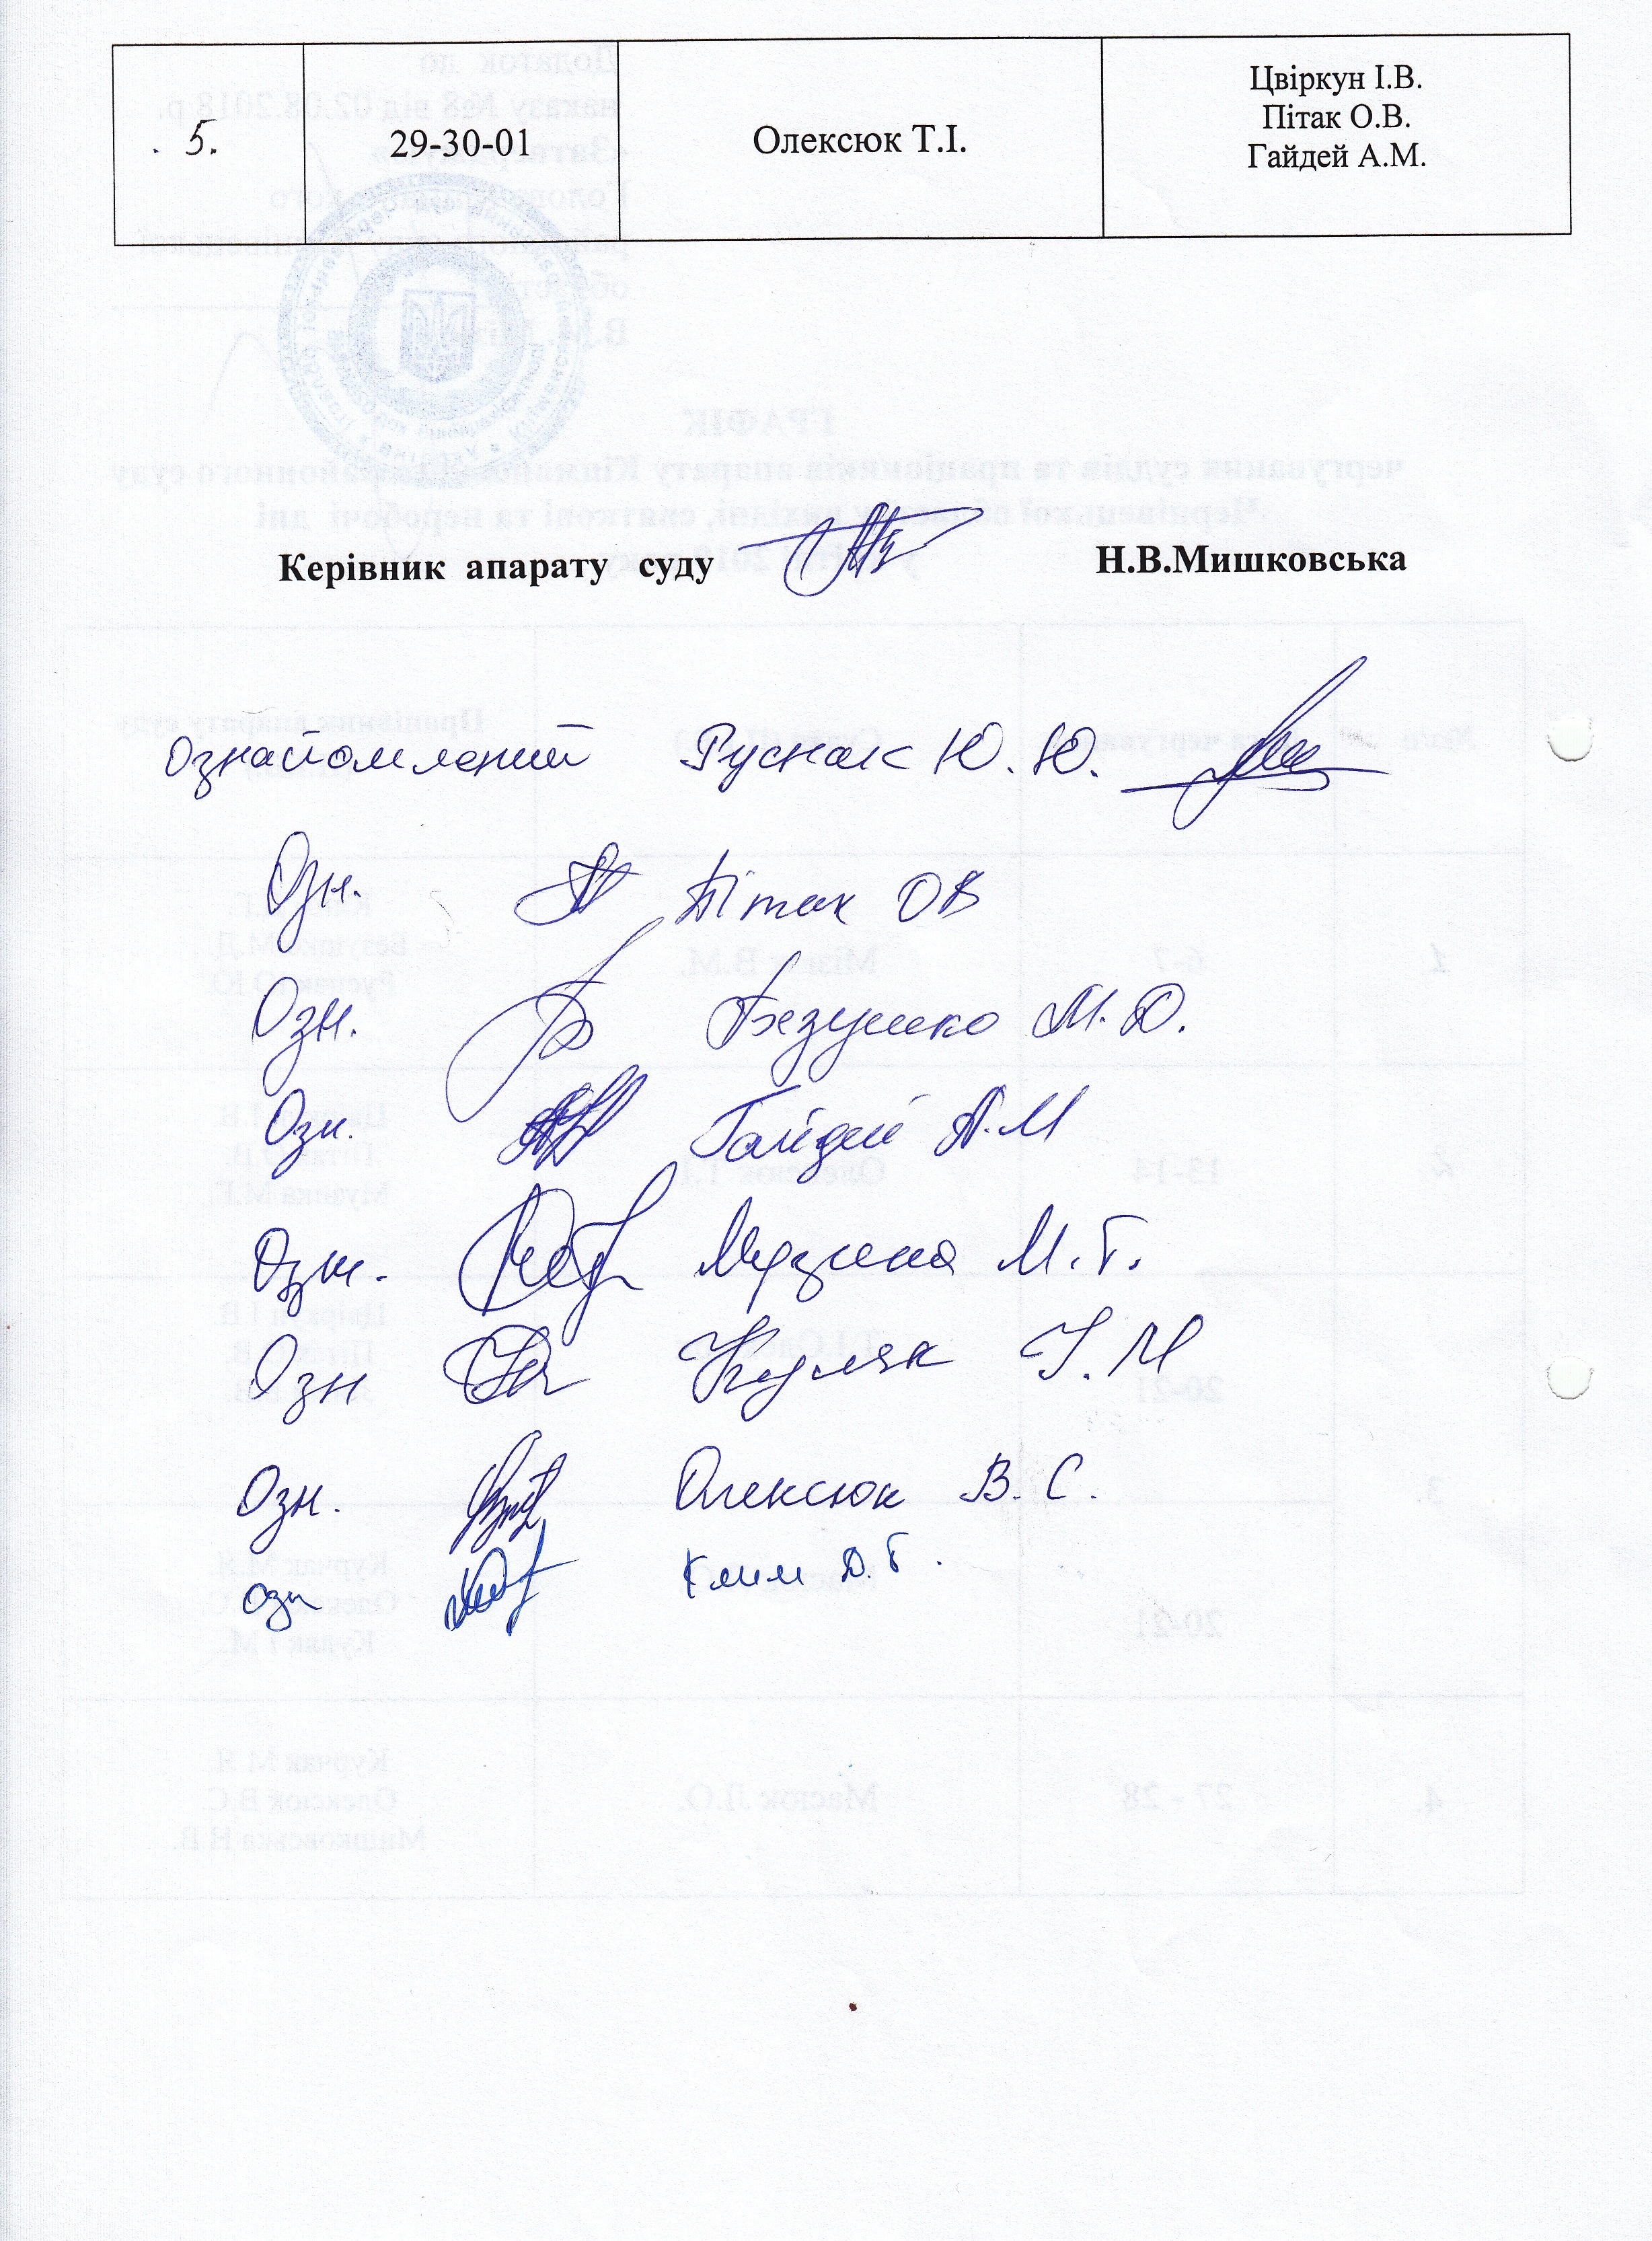 5. 29-30-01 Олексюк Т.І. Цвіркун І.В.
Пітак О.В.
Гайдей А.М.
Керівник апарату суду Н.В.Мишковська
ознайомлений Руснак Ю.Ю.
Озн. Пітак ОВ
Озн. Безушко М.Д.
Озн. Гайдей А.М
Озн. М.Г.
Озн Куляк І.М
Озн. Олексюк В.С.
озн Клим Д.Г.